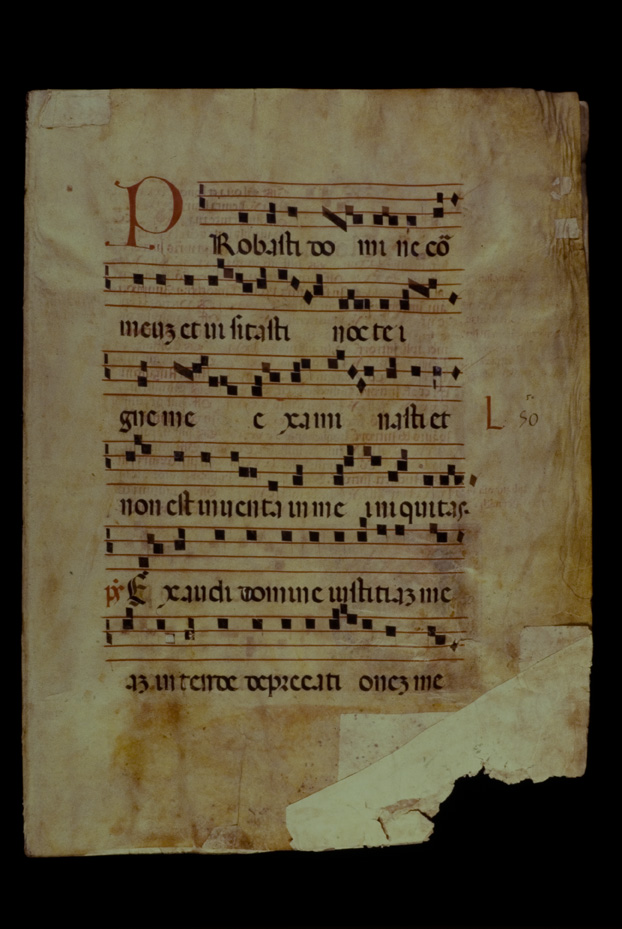 PRobasti do mi ne cõ
meuz et ui sitasti noc te i
gne me e xa mi nasti et
L 50
non est inuenta in me ini quitas.
ps̃ Exaudi domine iustitiaz me
az in tende deprecati onez me